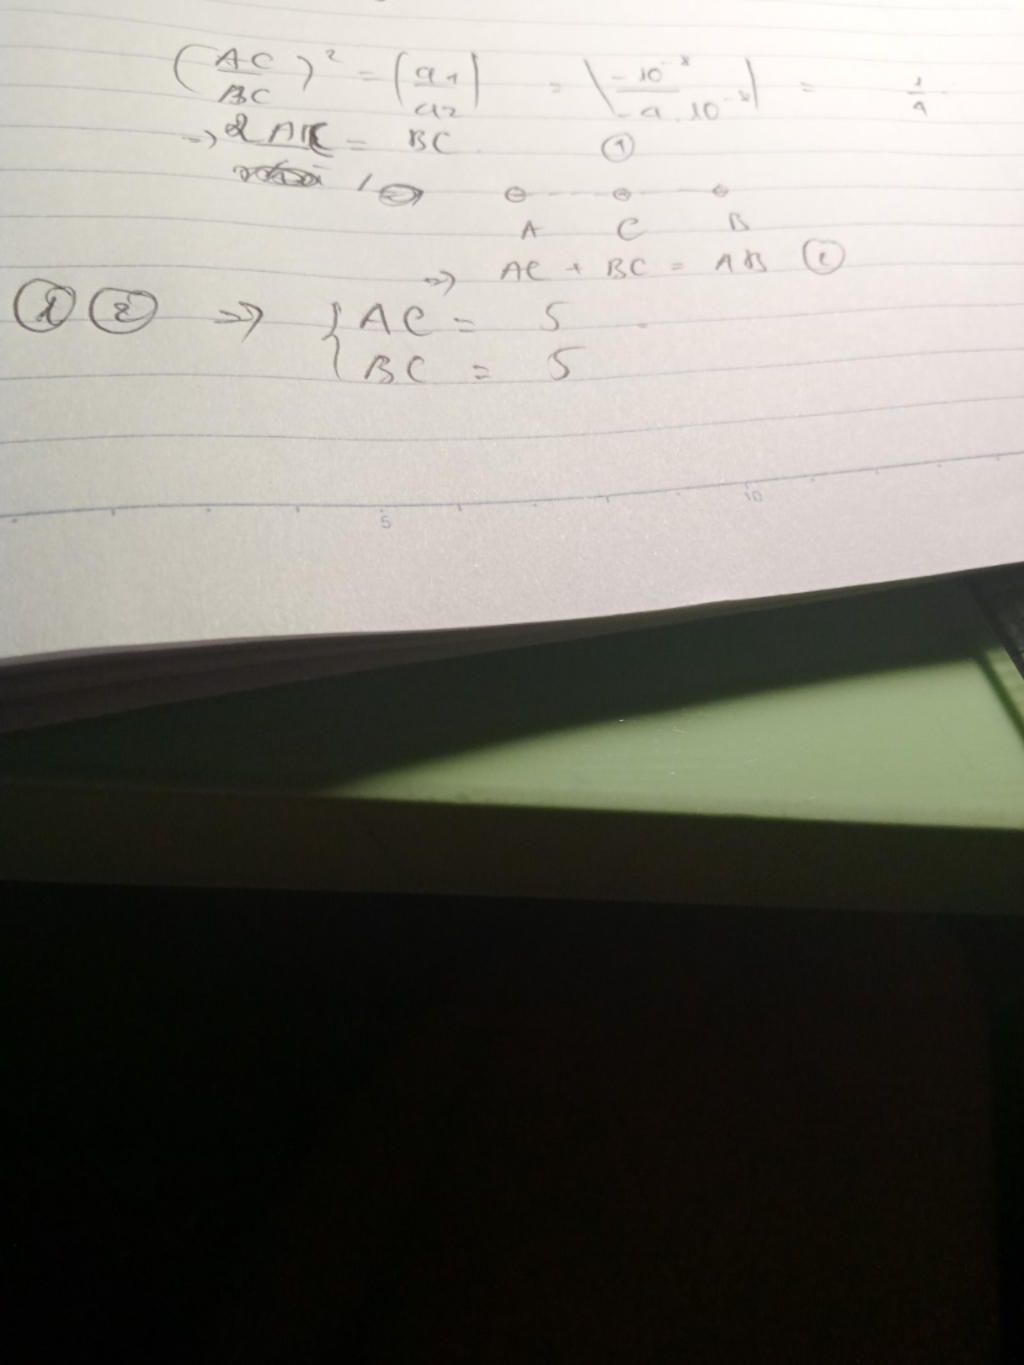 (AC/BC)² = |q1/q2| = |-10⁻⁸/-4.10⁻⁸| = 1/4
→ 2AC = BC ①
A C B
=> AC + BC = AB ②
① ② => { AC = 5
BC = 5
5 10